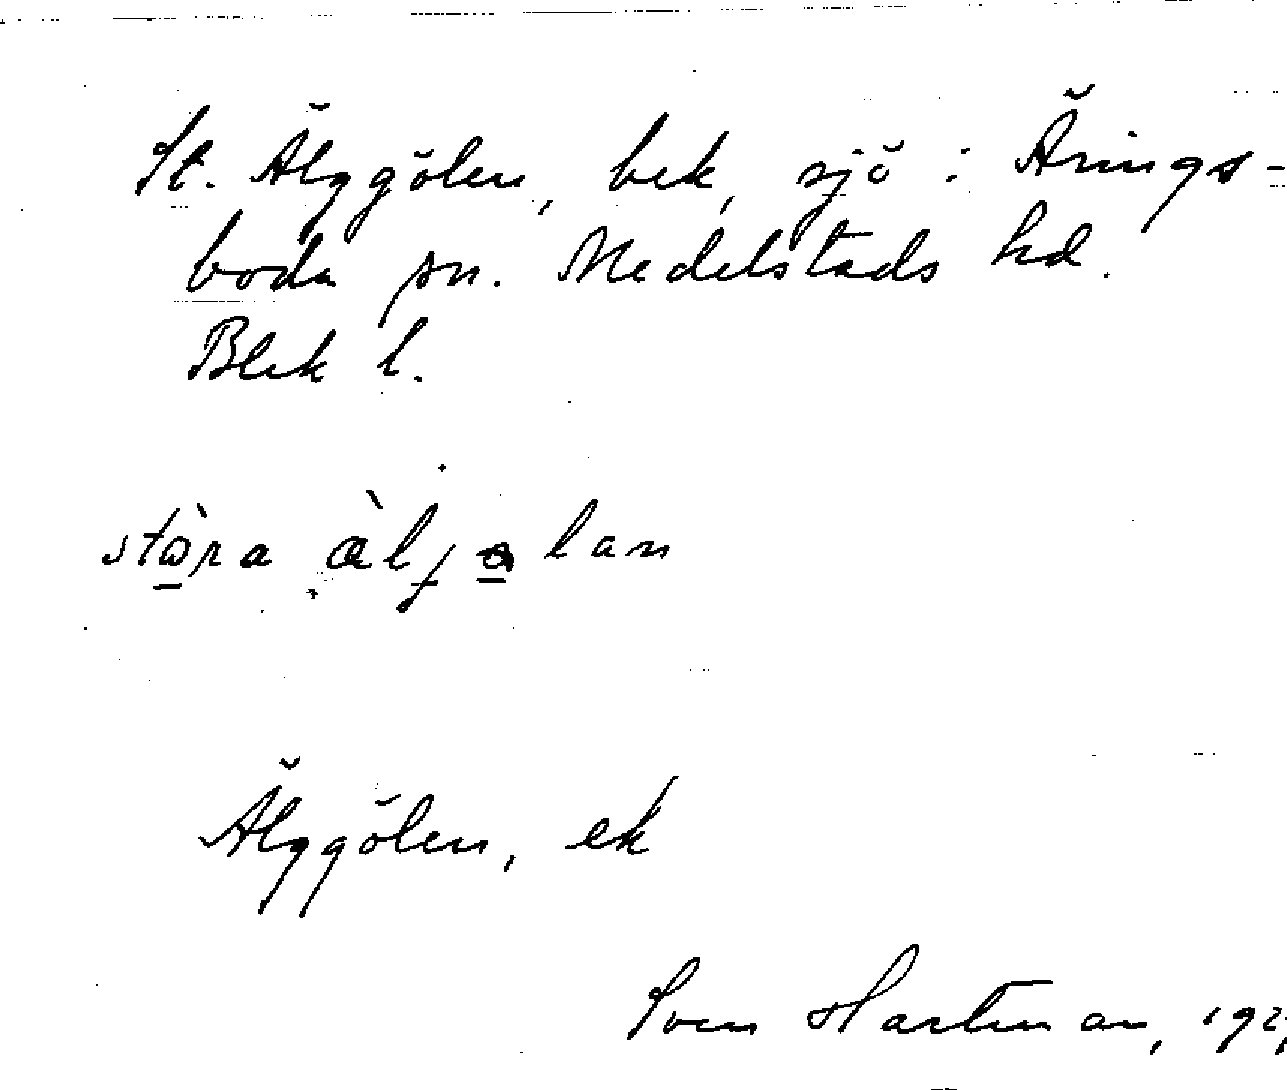 St. Älggölen, bek, sjö i Ärings-
boda sn. Medelstads hd.
Blek l.
stòra àljolan
Älggölen, ek
Sven Hartman, 192